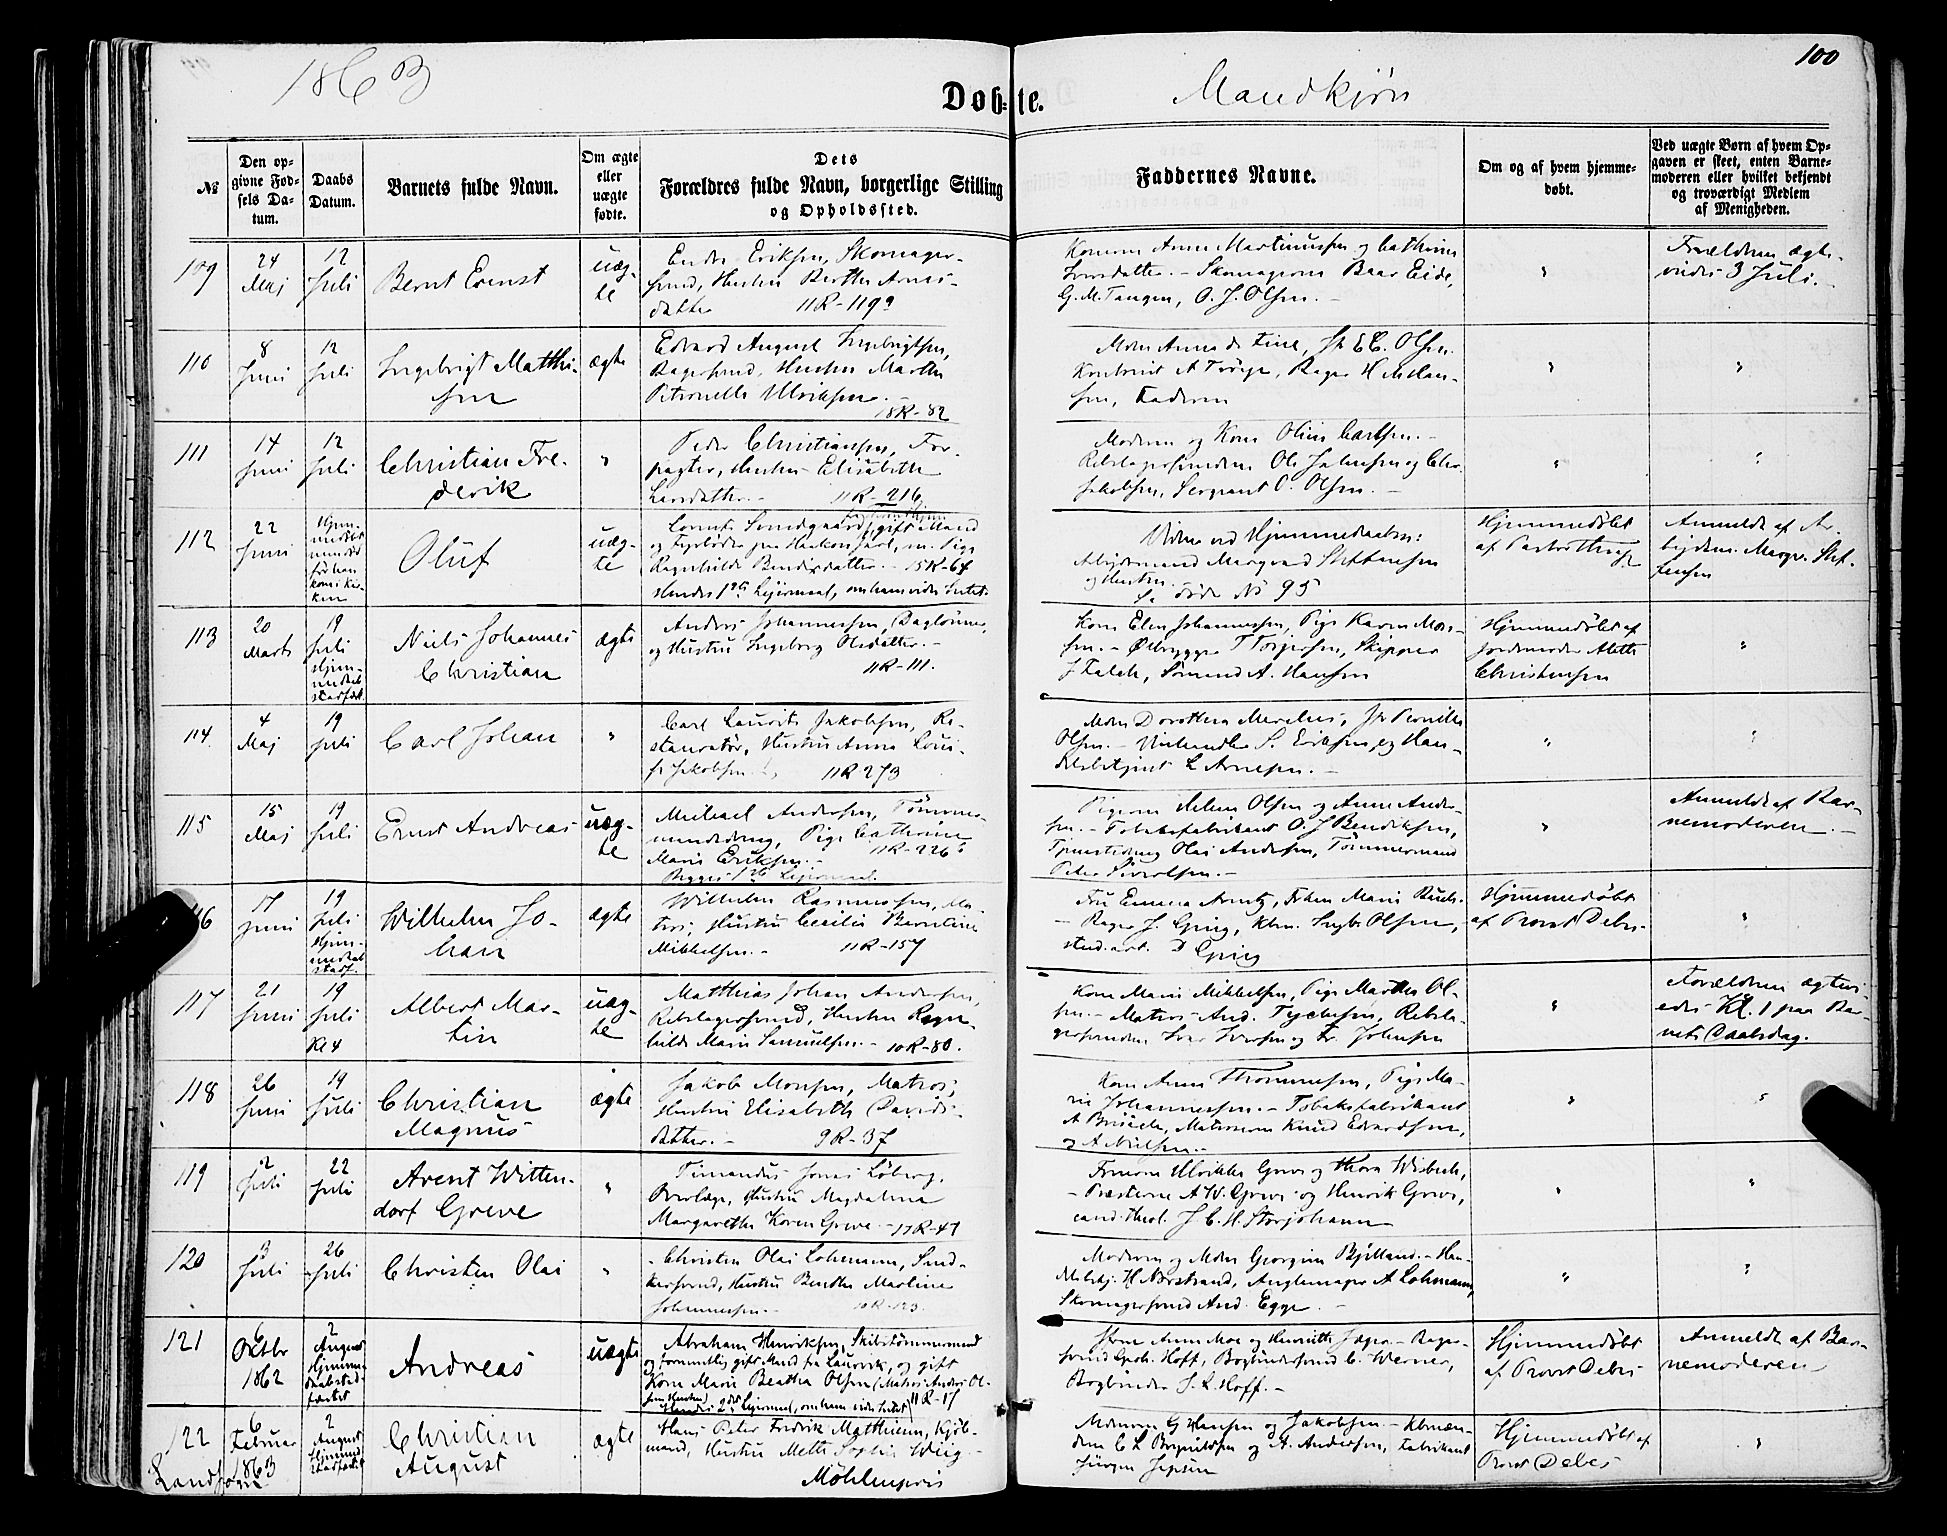 100
1863
Døbte.
Mandkjøn
№
Den opgivne Fødsels Datum.
Daabs Datum.
Barnets fulde Navn.
Om ægte eller uægte fødte.
Dets
Forældres fulde Navn, borgerlige Stilling
og Opholdssted.
Faddernes Navne.
Om og af hvem hjemmedøbt.
Ved uægte Børn af hvem Opgaven er skeet, enten Barnemoderen eller hvilket bekjendt og troværdigt Medlem af Menigheden.
109
24 Maj
12 Juli
Bernt Ernst
uæg-
te
Endre Eriksen, Skomager-
svend, Hustru Berthe Arnes-
datter 11R-119
Konerne Anne Martinussen og Cathrine
Iversdatter. - Skomagerne Baar Eide,
G. M. Tangen, O. J. Olsen. -
Forældrene ægte-
viedes 3 Juli. -
110
8 Juni
12 Juli
Ingebrigt Matthi-
sen
ægte
Edvard August Ingebrigtsen,
Bagersvend, Hustru Marthe
Petronelle Ulriksen.
18R-82
Olsen.
Bager H M Han-
sen, Faderen
"
"
111
14 Juni
12 Juli
Christian Fre-
derik
"
Peder Christiansen, For-
pagter, Hustru Elisabeth
Larsdatter. - 11R-216
Moderen og Kone Oline Carlsen. -
Rebslagersvendene Ole Johnsen og Chr.
Jakobsen, Sergeant O. Olsen. -
"
"
112
22 Juni
Oluf
uæg-
te
gift Mand
og Fyrbøder paa Hakon Jarl, m. Pige
Ragnhilde Bendixdatter. - 15R-64
Hendes 1ste Leiermaal, om ham vides Intet.
Vidner ved Hjemmedaaben:
Arbejdsmand Margrad Steffensen
og Hustru.
Se døde No 95
Hjemmedøbt
af Pastor
Anmeldt af Ar-
bejdsm. Margr. Stef-
fensen
113
20 Marts
19 Juli
Hjem-
medaab
stadfæst
Niels Johannes
Christian
ægte
Anders Johannessen, Daglønner,
og Hustru Ingeborg Olsdatter. -
11R-111.
Kone Elen Johannessen, Pige Karen Mor-
sen. - Ølbrygger T Torgersen, Skipper
J Falch, Sømand A. Hansen
Hjemmedøbt af
Jordemoder Alette
Christensen
"
114.
4 Maj
19 Juli
Carl Johan
"
Carl Laurits Jakobsen, Re-
stauratør, Hustru Anna Loui-
se Jakobsen. 11R 273
Olsen. - Vinhandler S. Eriksen og Han-
delsbetjent L Arnesen. -
"
"
115
15 Maj
19 Juli
Ernst Andreas
uæg-
te
Michael Andersen, Tømmer-
mandsdreng, Pige Cathrine
Marie Eriksen. - 11R-226
Begges 1ste Leiermaal.
Pigerne Helene Olsen og Anne Ander-
sen. - Tobaksfabrikant O. J Bendiksen,
Tjenestedreng Olai Andersen, Tømmermand
Peter Siversen. -
"
Anmeldt af Bar-
nemoderen. -
116
17 Juni
19 Juli
Hjem-
medaab
stadf.
Wilhelm Jo-
han
ægte
Wilhelm Rasmussen, Ma-
tros, Hustru Cecilie Berntine
Mikkelsen. - 11R-157
Fru Emma Arentz, Frøken Marie Buch.
- Bager J. Gjerg, Kbm. Ingbr Olsen,
stud. art.
Hjemmedøbt
af Provst Debes.
"
117
21 Juni
19 Juli
Kl 4
Albert Mar-
tin
uæg-
te
Matthias Johan Andersen,
Rebslagersvend, Hustru Ragn-
hilde Marie Samuelsen. - 10R-80.
Kone Marie Mikkelsen, Pige Marthe Ol-
sen. - Matros And. Tychesen, Rebsla-
gersvendene Iver Iversen og Fr. Johnsen
"
Forældrene ægtevi-
edes Kl. 1 paa Bar-
nets Daabsdag.
118
26 Juni
19 Juli
Christian
Magnus
ægte
Jakob Monsen, Matros,
Hustru Elisabeth Davids-
datter. - 9R-37
Kone Anne Thommesen, Pige Ma-
rie Johannessen. - Tobaksfabrikant
Matroserne Knud Edvardsen,
og A Nielsen. -
"
"
119
2 Juli
22 Juli
Arent Witten-
dorf Greve
"
Timandus Jonas Løberg,
Overlæge, Hustru Magdalena
Margarethe Koren Greve. - 17R-47
Fruerne Ulrikke Greve og Thora Wisbech,
- Præsterne A W. Greve og Henrik Greve,
cand. theol. J C. H. Storjohann
"
"
120
3 Juli
26 Juli
Christen Olai
"
Christen Olai Lohmann, Smed-
kersvend, Hustru Berthe Martine
Johannessen. - 10R-123.
Moderen og Mdm Georgine Bjelland. - Han-
delsbetj. H Nørstrand, Anglemager A Lohmann,
Skomagersvend And. Egge. -
"
"
121
6 Oktbr 1862
2 August
Hjemme-
daab stad-
fæstet
Andreas
uægte
Abraham Henriksen, Skibstømmermand
og formentlig gift Mand fra Laurvik, og gift
Kone Marie Beatha Olsen (Matros Anders Ol-
sens Hustru)
Hendes 2det Leiermaal, om ham vides Intet 11R-17
Kone Anne Moe og Henriette Jæger. - Bager-
svend Hoff, Bogbindersvend C. Werner,
Bogbinder S. L. Hoff. -
Hjemmedøbt
af Provst Debes
Anmeldt af Bar-
nemoderen
122
Landsogn
6 Februar 1863
2 August
Hjemmed
stadfæstet
Christian
August
ægte
Hans Peter Fredrik Matthiesen, Kjøb-
mand, Hustru Mette Sophie Wiig. -
Möhlenpris
Mdmerne G Hansen og Jakobsen. - Kbmæn-
dene C L Brynildsen og A. Andersen, Fabrikant
Jürgen Jepsen
Hjemmedøbt af
Provst Debes
"